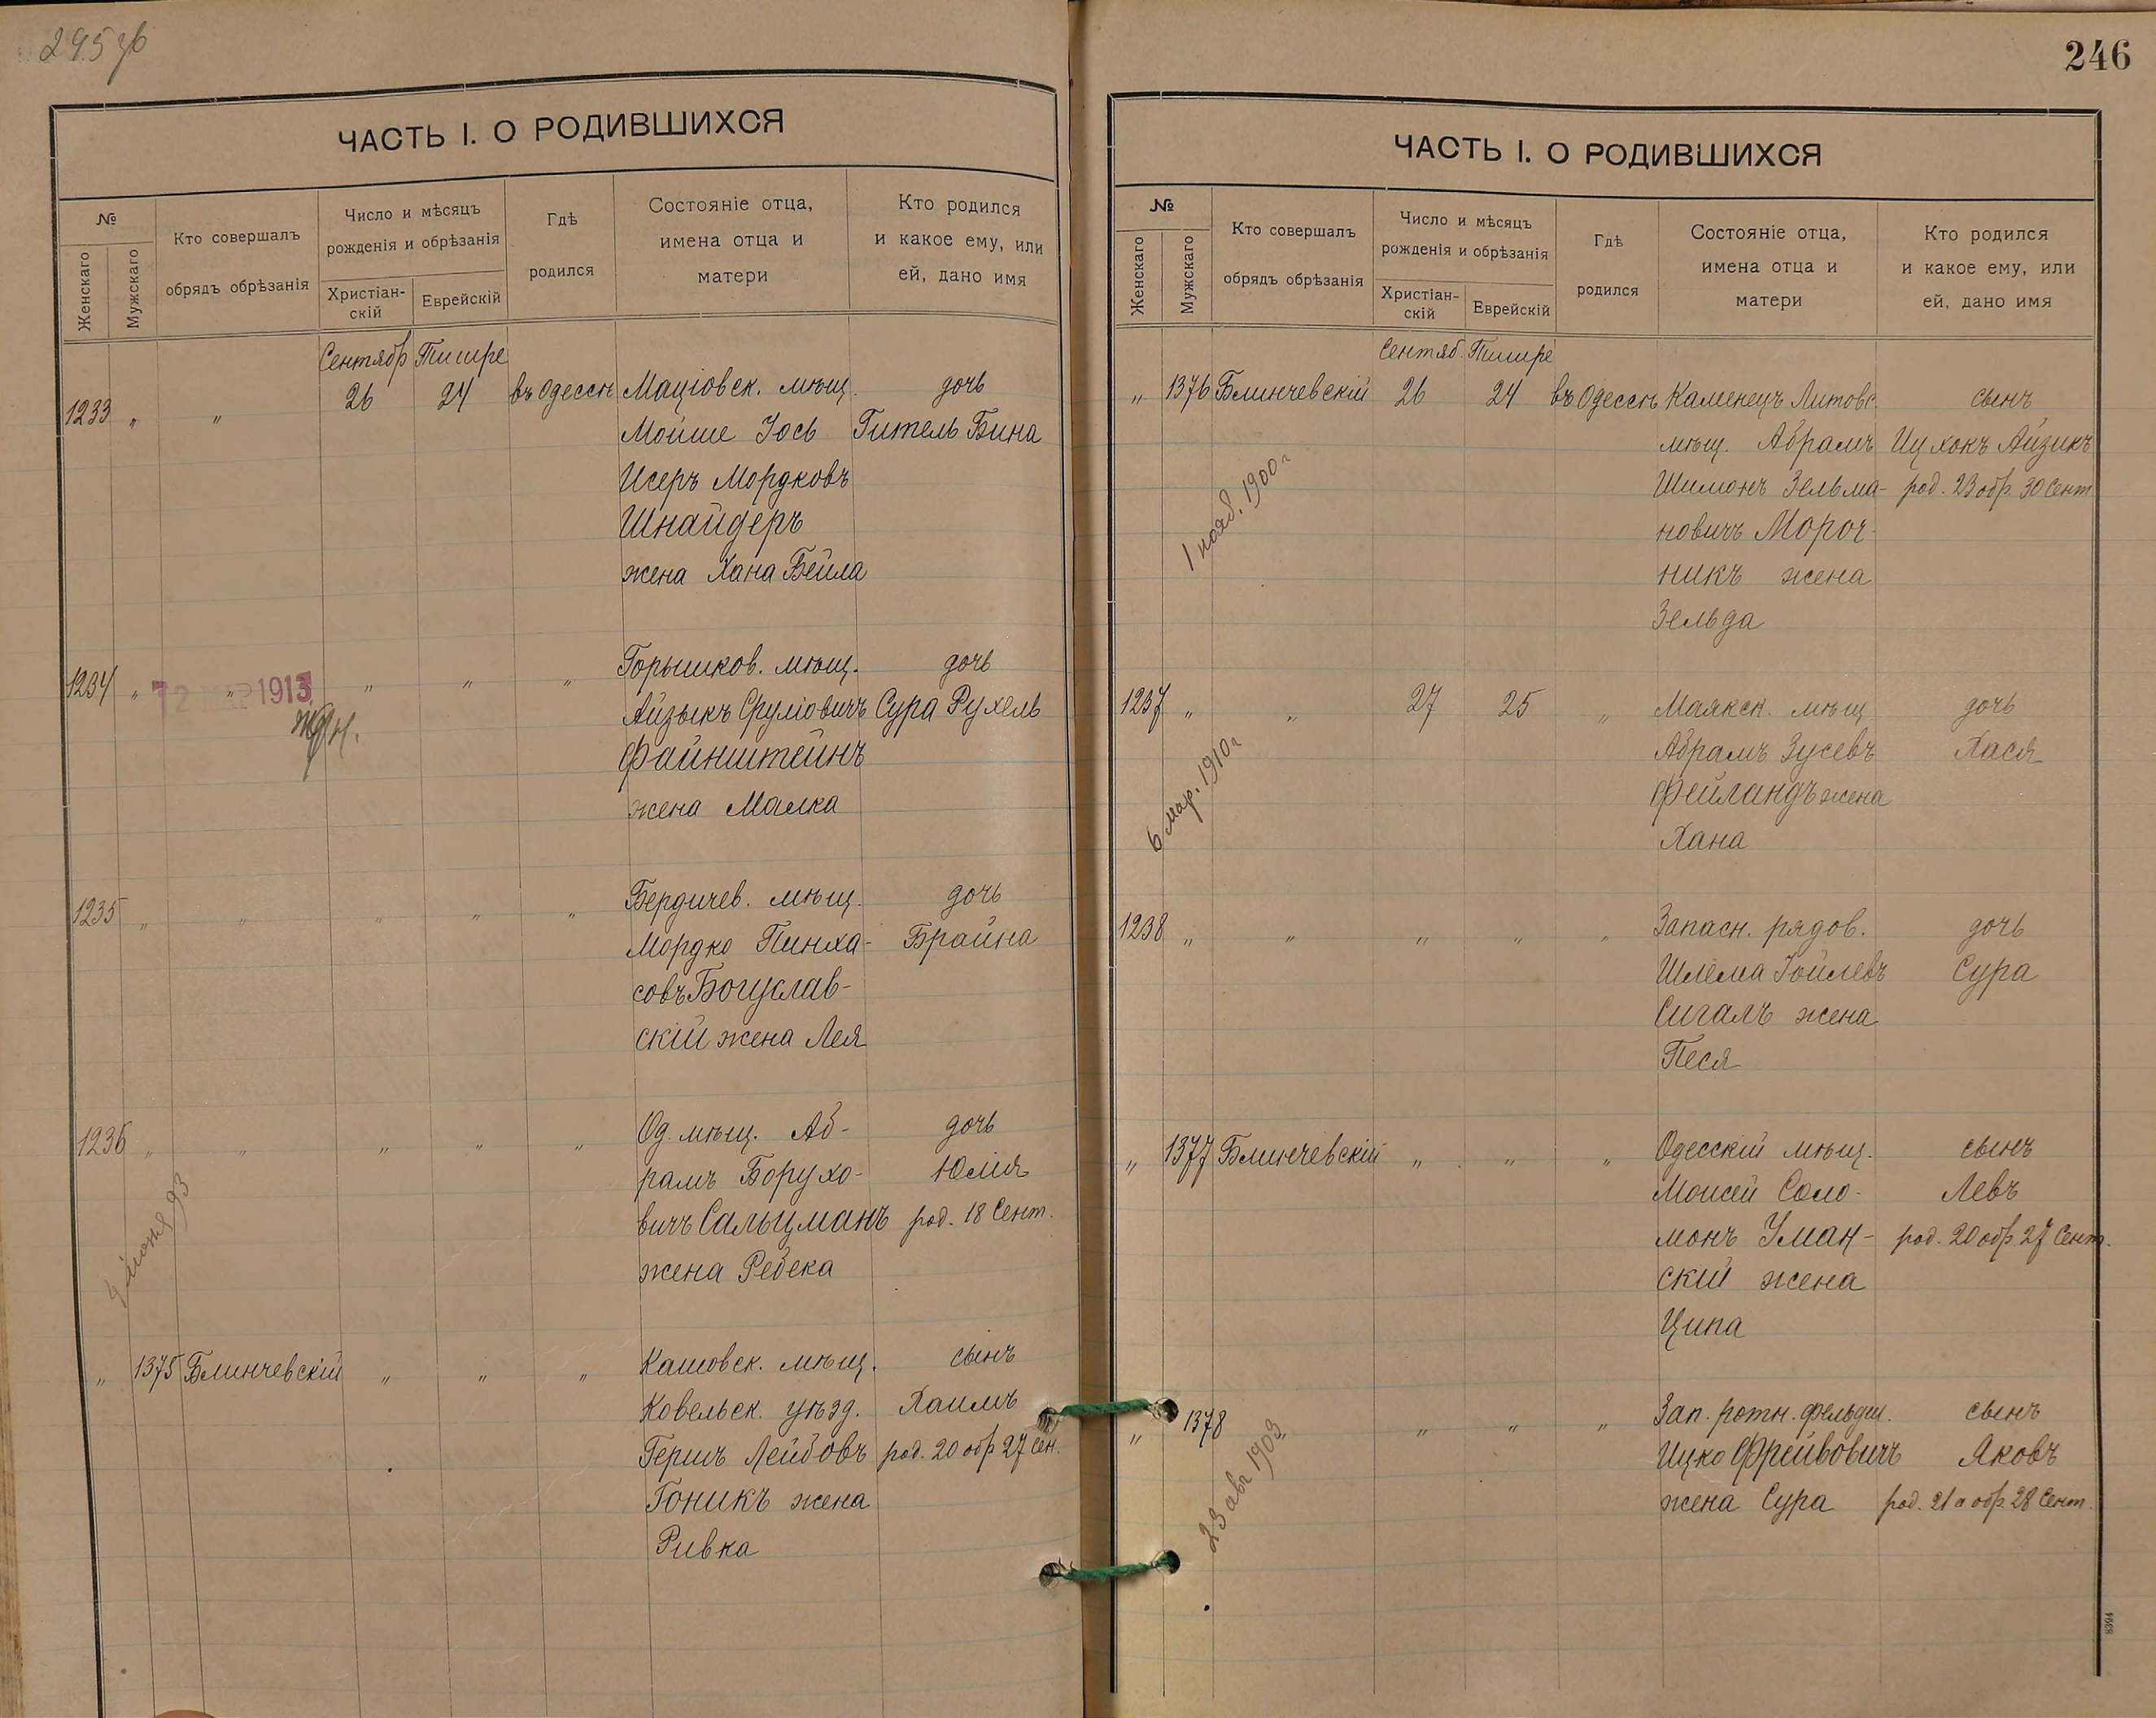 295 зв
ЧАСТЬ I. О РОДИВШИХСЯ
№
Женскаго
Мужскаго
Кто совершалъ
обрядъ обрѣзанія
Число и мѣсяцъ
рожденія и обрѣзанія
Христіан-
скій
Еврейскій
Гдѣ
родился
Состояніе отца,
имена отца и
матери
Кто родился
и какое ему, или
ей, дано имя
Сентябр Тишре
1233 " " 26 24 въ Одессѣ Маціовск. мѣщ. дочь
Мойше Іось Гитель Бина
Исеръ Мордковъ
Шнайдеръ
жена Хана Бейла
1234 " " " " " Горышков. мѣщ. дочь
1913
Айзыкъ Сруліовичъ Сура Рухель
Файнштейнъ
жена Малка
1235 " " " " " Бердичев. мѣщ. дочь
Мордко Пинха- Брайна
совъ Богуслав-
скій жена Лея
1236 " " " " " Од. мѣщ. Аб- дочь
рамъ Борухо- Юлія
вичъ Сальцманъ род. 18 Сент.
жена Ребека
іюня 93
" 1375 Блинчевскій " " " Кашовск. мѣщ. сынъ
Ковельск. уѣзд. Хаимъ
Гершъ Лейбовъ род. 20 обр 27 Сен.
Гоникъ жена
Ривка
246
ЧАСТЬ I. О РОДИВШИХСЯ
№
Женскаго
Мужскаго
Кто совершалъ
обрядъ обрѣзанія
Число и мѣсяцъ
рожденія и обрѣзанія
Христіан-
скій
Еврейскій
Гдѣ
родился
Состояніе отца,
имена отца и
матери
Кто родился
и какое ему, или
ей, дано имя
Сентяб. Тишре
" 1376 Блинчевскій 26 24 въ Одессѣ Каменецъ Литовс. сынъ
мѣщ. Абрамъ Ицхокъ Айзикъ
Шимонъ Зельма- род. 23 обр. 30 Сент
новичъ Мороч-
никъ жена
Зельда
1 нояб. 1900 г
1237 " " 27 25 " Маякск. мѣщ. дочь
Абрамъ Зусевъ Хася
Фейландъ жена
Хана
6 мар. 1910 г
1238 " " " " " Запасн. рядов. дочь
Шлема Іойлевъ Сура
Сигалъ жена
Песя
" 1377 Блинчевскій " " " Одесскій мѣщ. сынъ
Моисей Соло- Левъ
монъ Уман- род. 20 обр 27 Сент.
скій жена
Ципа
" 1378 " " " Зап. ротн. фельдш. сынъ
Ицко Фрейвовичъ Яковъ
жена Сура род. 21 а обр. 28 Сент.
23 авг 1903
8394